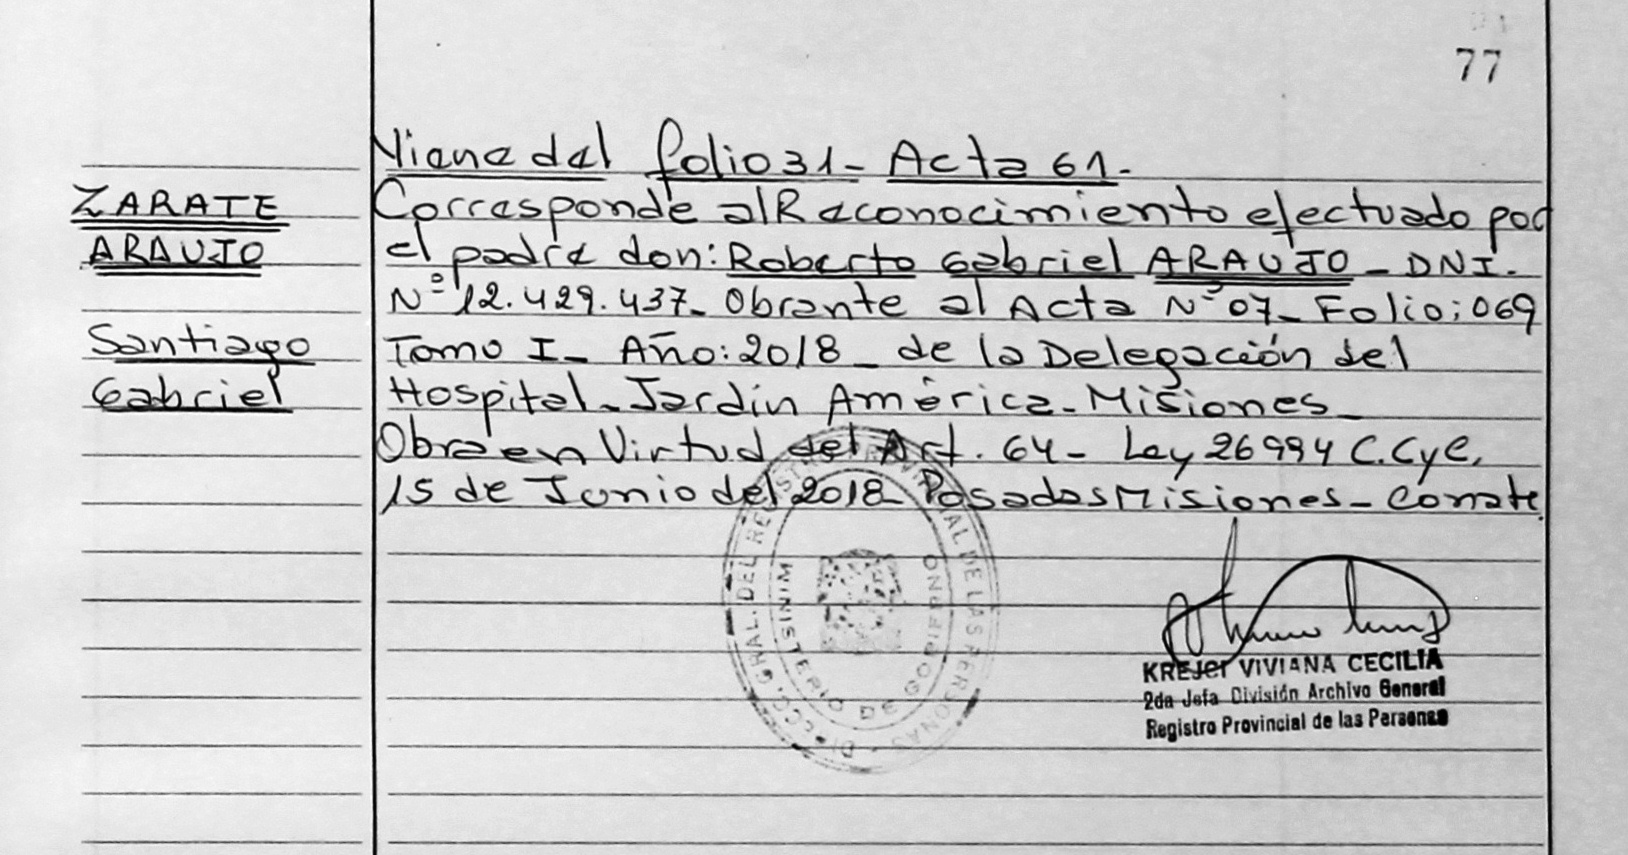 77
Viene del folio 31 - Acta 61.
ZARATE
ARAUJO
Santiago
Gabriel
Corresponde al Reconocimiento efectuado por
el padre don: Roberto Gabriel ARAUJO - DNI.
Nº 12.429.437 - Obrante al Acta Nº 07 - Folio: 069
Tomo I - Año: 2018 - de la Delegación del
Hospital - Jardín América - Misiones -
Obra en Virtud del Art. 64 - Ley 26994 C.CyC.
15 de Junio del 2018 - Posadas Misiones - Conste.
DIRECC. GRAL. DEL REGISTRO PROVINCIAL DE LAS PERSONAS
MINISTERIO DE GOBIERNO
KREJCI VIVIANA CECILIA
2da Jefa División Archivo General
Registro Provincial de las Personas